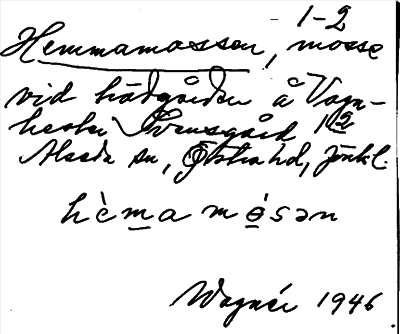 1-2
Hemmamossen, mosse
vid trädgården å Vagn-
hester Svensgård 1/2
Alseda sn, Östra hd, Jönkl.
hèmamósən
Wagnér 1946